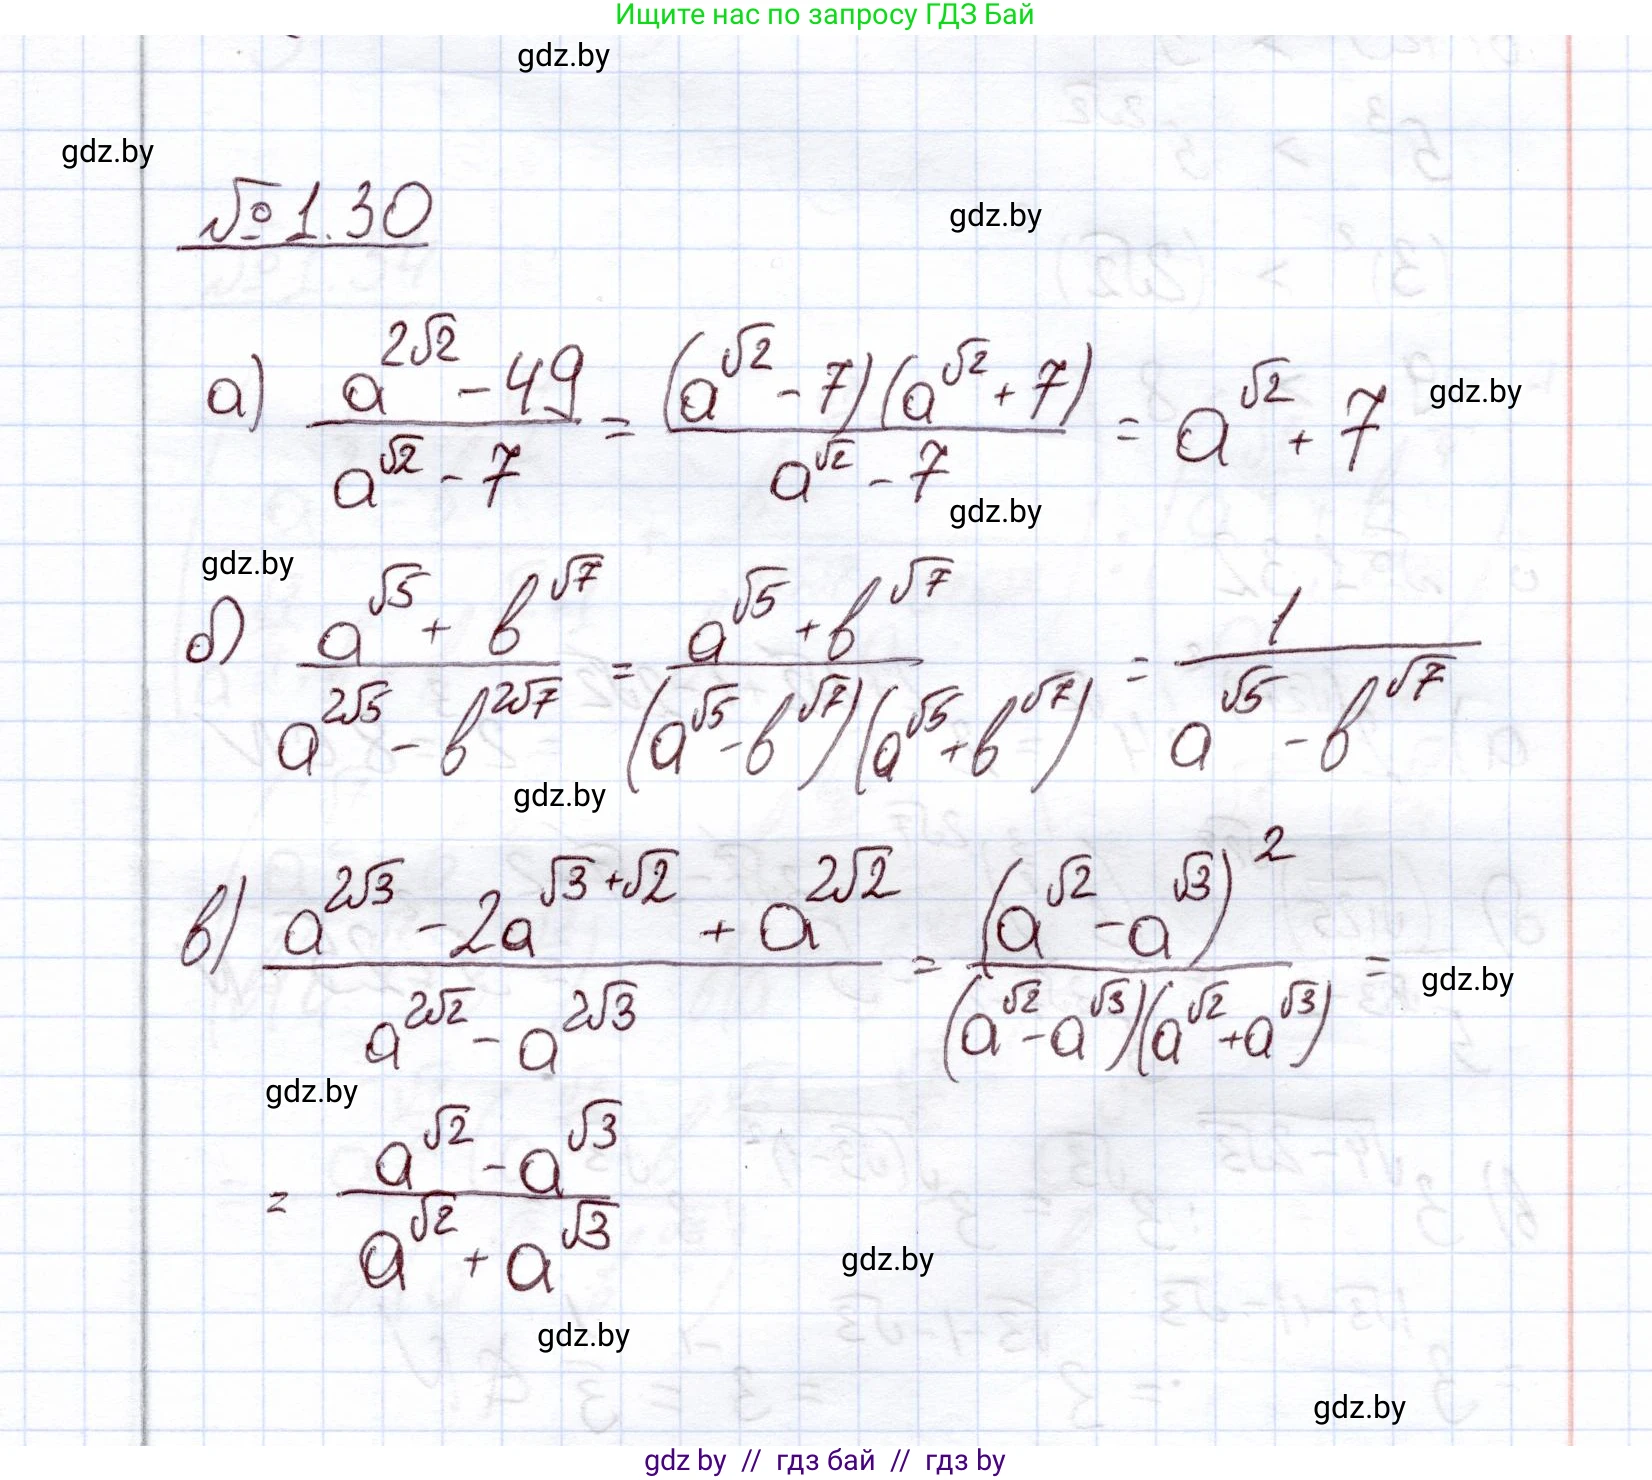 Ищите нас по запросу ГДЗ Бай
gdz.by
gdz.by
№1.30
gdz.by
а) (a^(2√2) - 49)/(a^(√2) - 7) = ((a^(√2) - 7)(a^(√2) + 7))/(a^(√2) - 7) = a^(√2) + 7
gdz.by
gdz.by
gdz.by
б) (a^(√5) + b^(√7))/(a^(2√5) - b^(2√7)) = (a^(√5) + b^(√7))/((a^(√5) - b^(√7))(a^(√5) + b^(√7))) = 1/(a^(√5) - b^(√7))
gdz.by
в) (a^(2√3) - 2a^(√3+√2) + a^(2√2))/(a^(2√2) - a^(2√3)) = (a^(√2) - a^(√3))^2/((a^(√2) - a^(√3))(a^(√2) + a^(√3))) =
gdz.by
gdz.by
= (a^(√2) - a^(√3))/(a^(√2) + a^(√3))
gdz.by
gdz.by
gdz.by
gdz by // гдз бай // гдз by